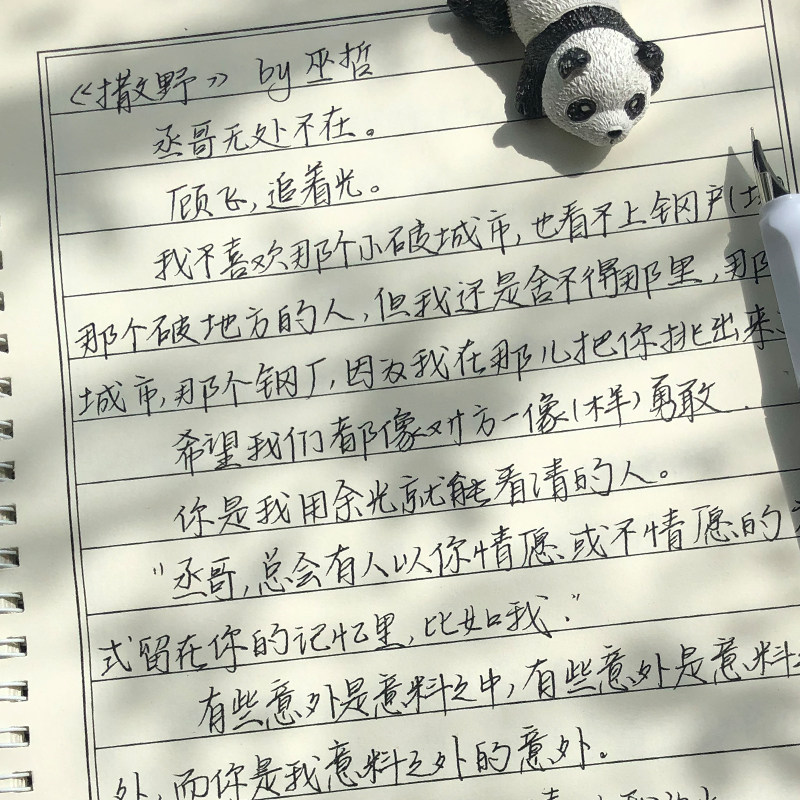 《撒野》 by 巫哲
丞哥无处不在。
顾飞,追着光。
我不喜欢那个小破城市,也看不上钢厂(
那个破地方的人,但我还是舍不得那里,那
城市,那个钢厂,因为我在那儿把你挑出来
希望我们都像对方一像(样)勇敢.
你是我用余光就能看清的人。
"丞哥,总会有人以你情愿或不情愿的
式留在你的记忆里,比如我."
有些意外是意料之中,有些意外是意料
外,而你是我意料之外的意外。